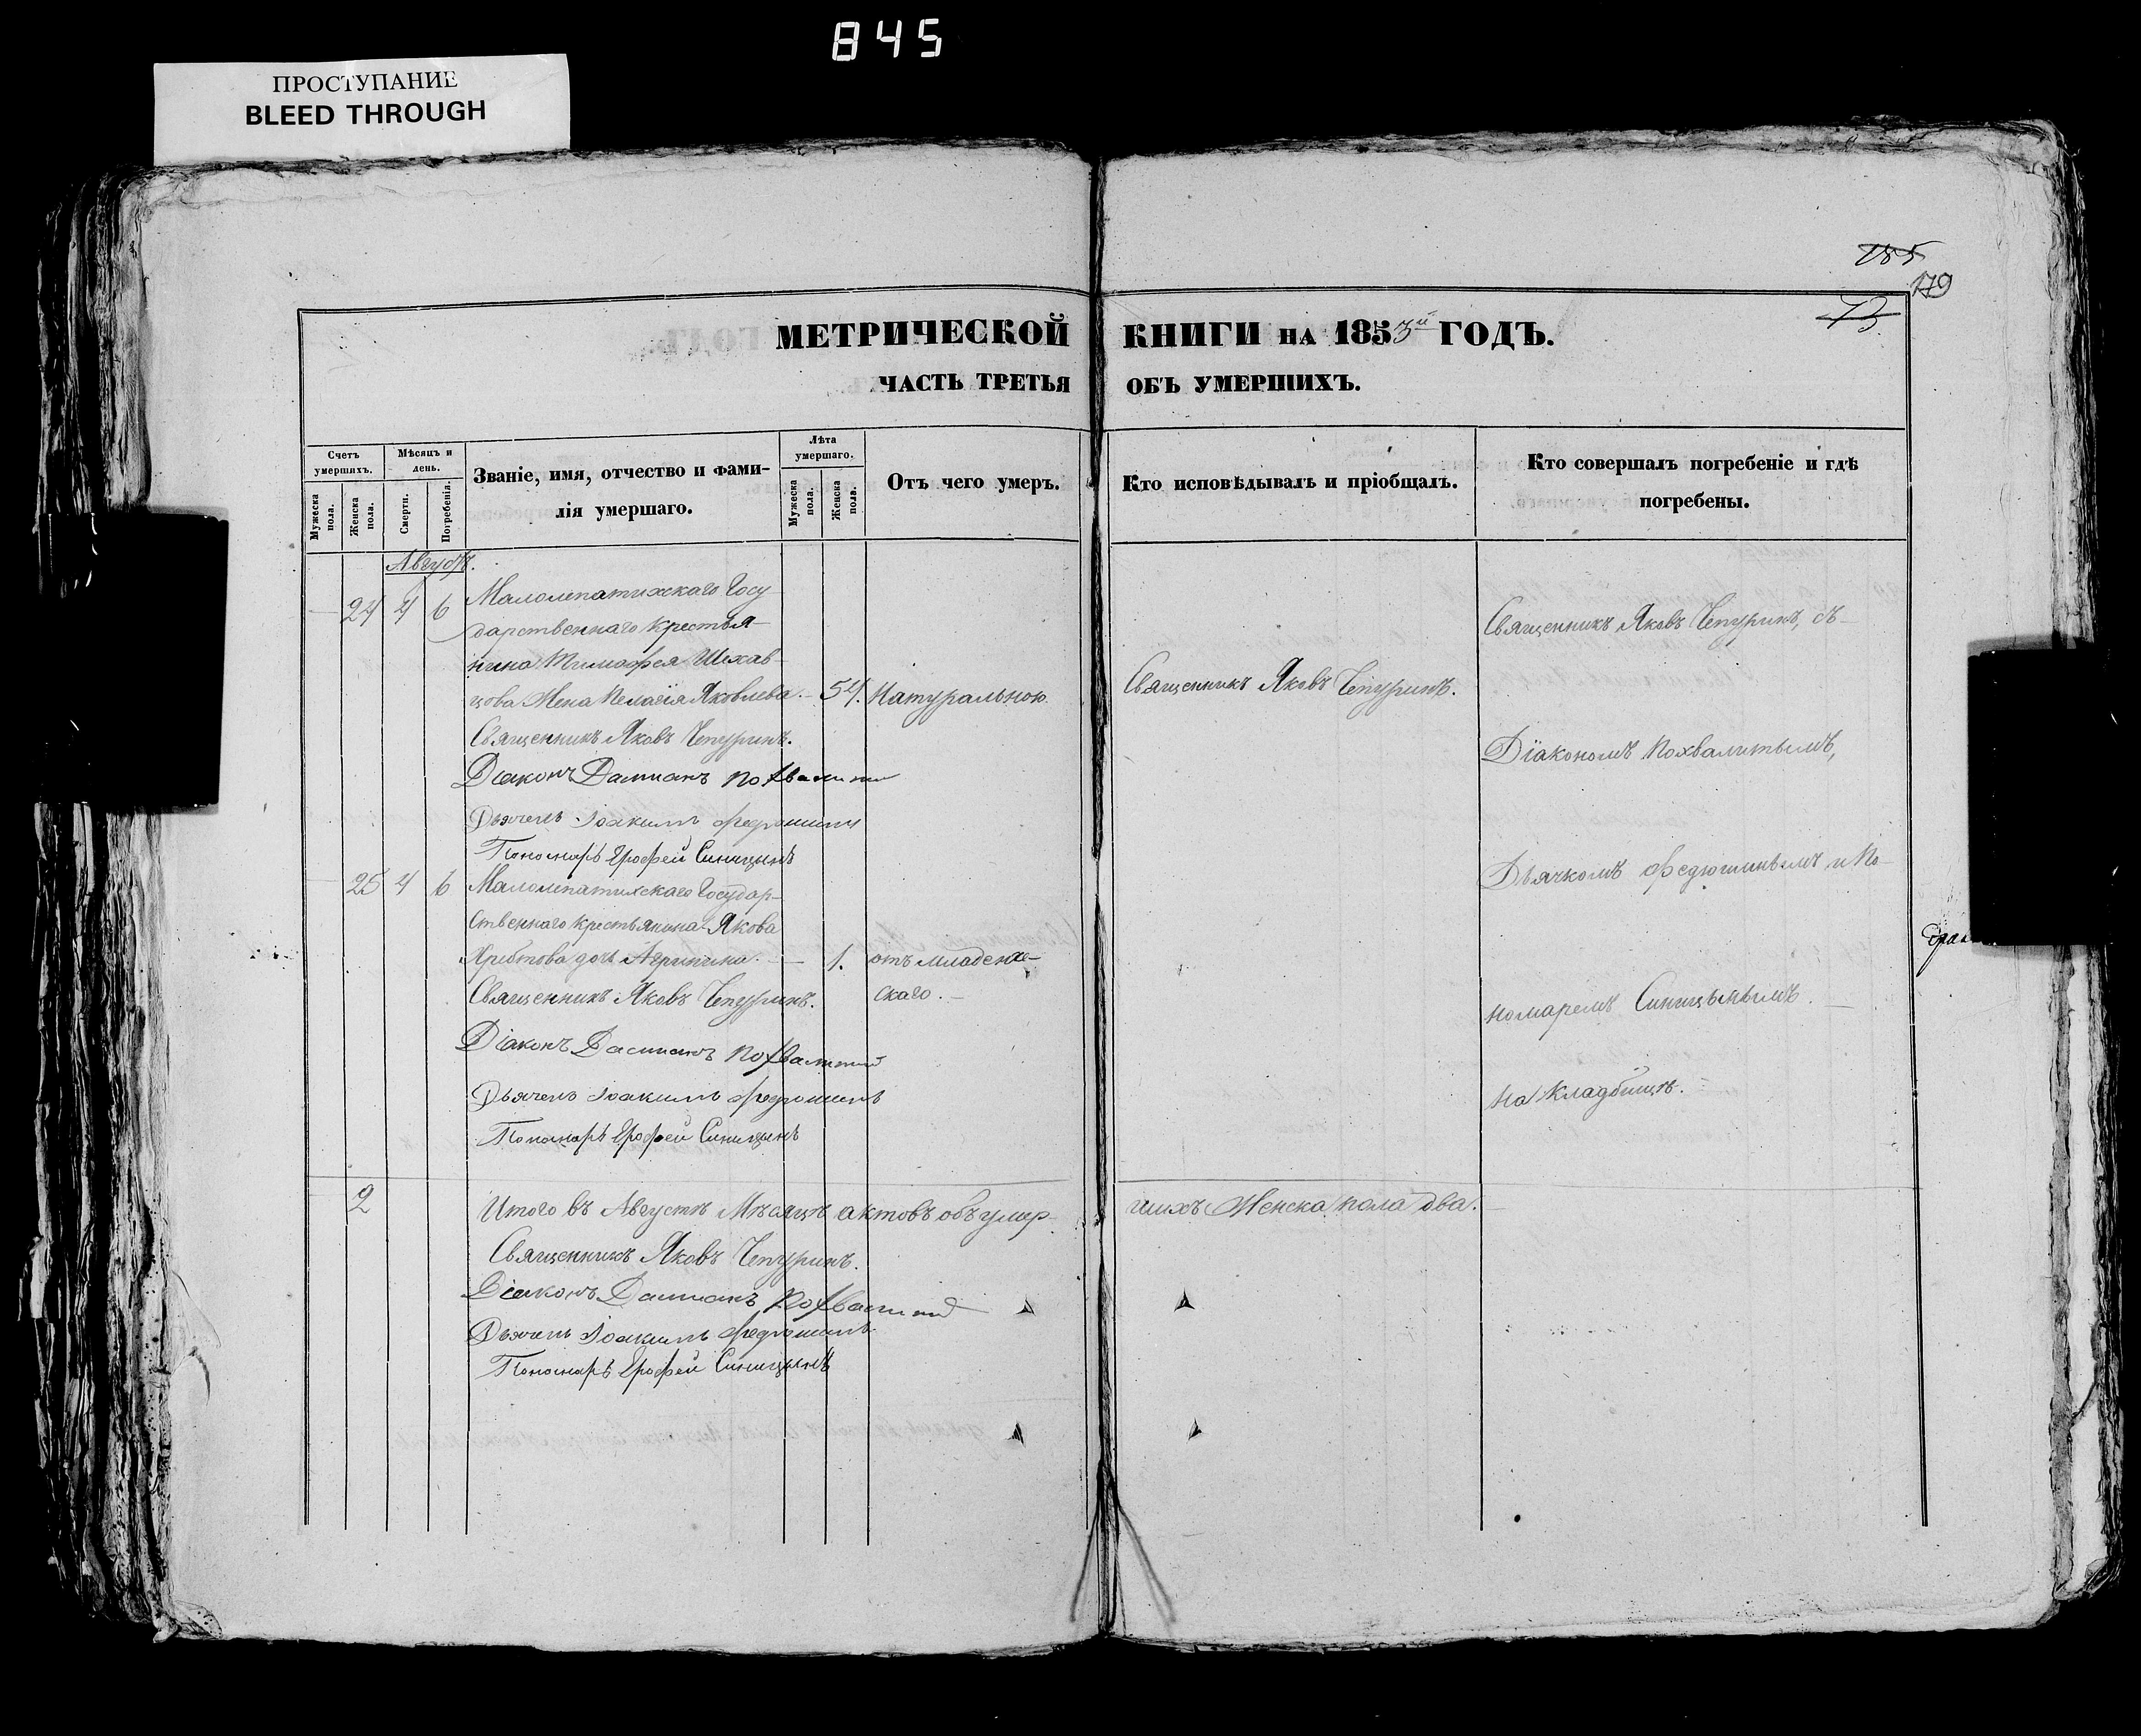 845
ПРОСТУПАНИЕ
BLEED THROUGH
185
179
73
МЕТРИЧЕСКОЙ КНИГИ на 1853й ГОДЪ.
ЧАСТЬ ТРЕТЬЯ ОБЪ УМЕРШИХЪ.
Счетъ умершихъ.
Мужеска пола.
Женска пола.
Мѣсяцъ и день.
Смерти.
Погребенія.
Званіе, имя, отчество и фами-
лія умершаго.
Лѣта умершаго.
Мужеска пола.
Женска пола.
Отъ чего умеръ.
Кто исповѣдывалъ и пріобщалъ.
Кто совершалъ погребеніе и гдѣ
погребены.
Августъ.
24 4 6 Малолепатихскаго Госу
дарственнаго крестья-
нина Тимофея Шехав-
цова Жена Пелагія Яковлева. — 54. Натуральною
Священникъ Яковъ Чепуринъ.
Діаконъ Дамианъ Похвалитый
Дьячекъ Іоакимъ Федюшинъ
Пономарь Ерофей Синицынъ
25 4 6 Малолепатихскаго Государ-
ственнаго крестьянина Якова
Хребтова дочь Агрипина. — 1. отъ младенче-
скаго. —
Священникъ Яковъ Чепуринъ.
Діаконъ Дамианъ Похвалитый
Дьячекъ Іоакимъ Федюшинъ
Пономарь Ерофей Синицынъ
2 Итого въ Августѣ Мѣсяцѣ актовъ объ умер-
шихъ Женска пола два. —
Священникъ Яковъ Чепуринъ.
Діаконъ Дамианъ Похвалитый
Дьячекъ Іоакимъ Федюшинъ
Пономарь Ерофей Синицынъ
Священникъ Яковъ Чепуринъ.
Священникъ Яковъ Чепуринъ, съ
Діакономъ Похвалитымъ,
Дьячкомъ Федюшинымъ и По-
номаремъ Синицынымъ. —
на кладбищѣ. —